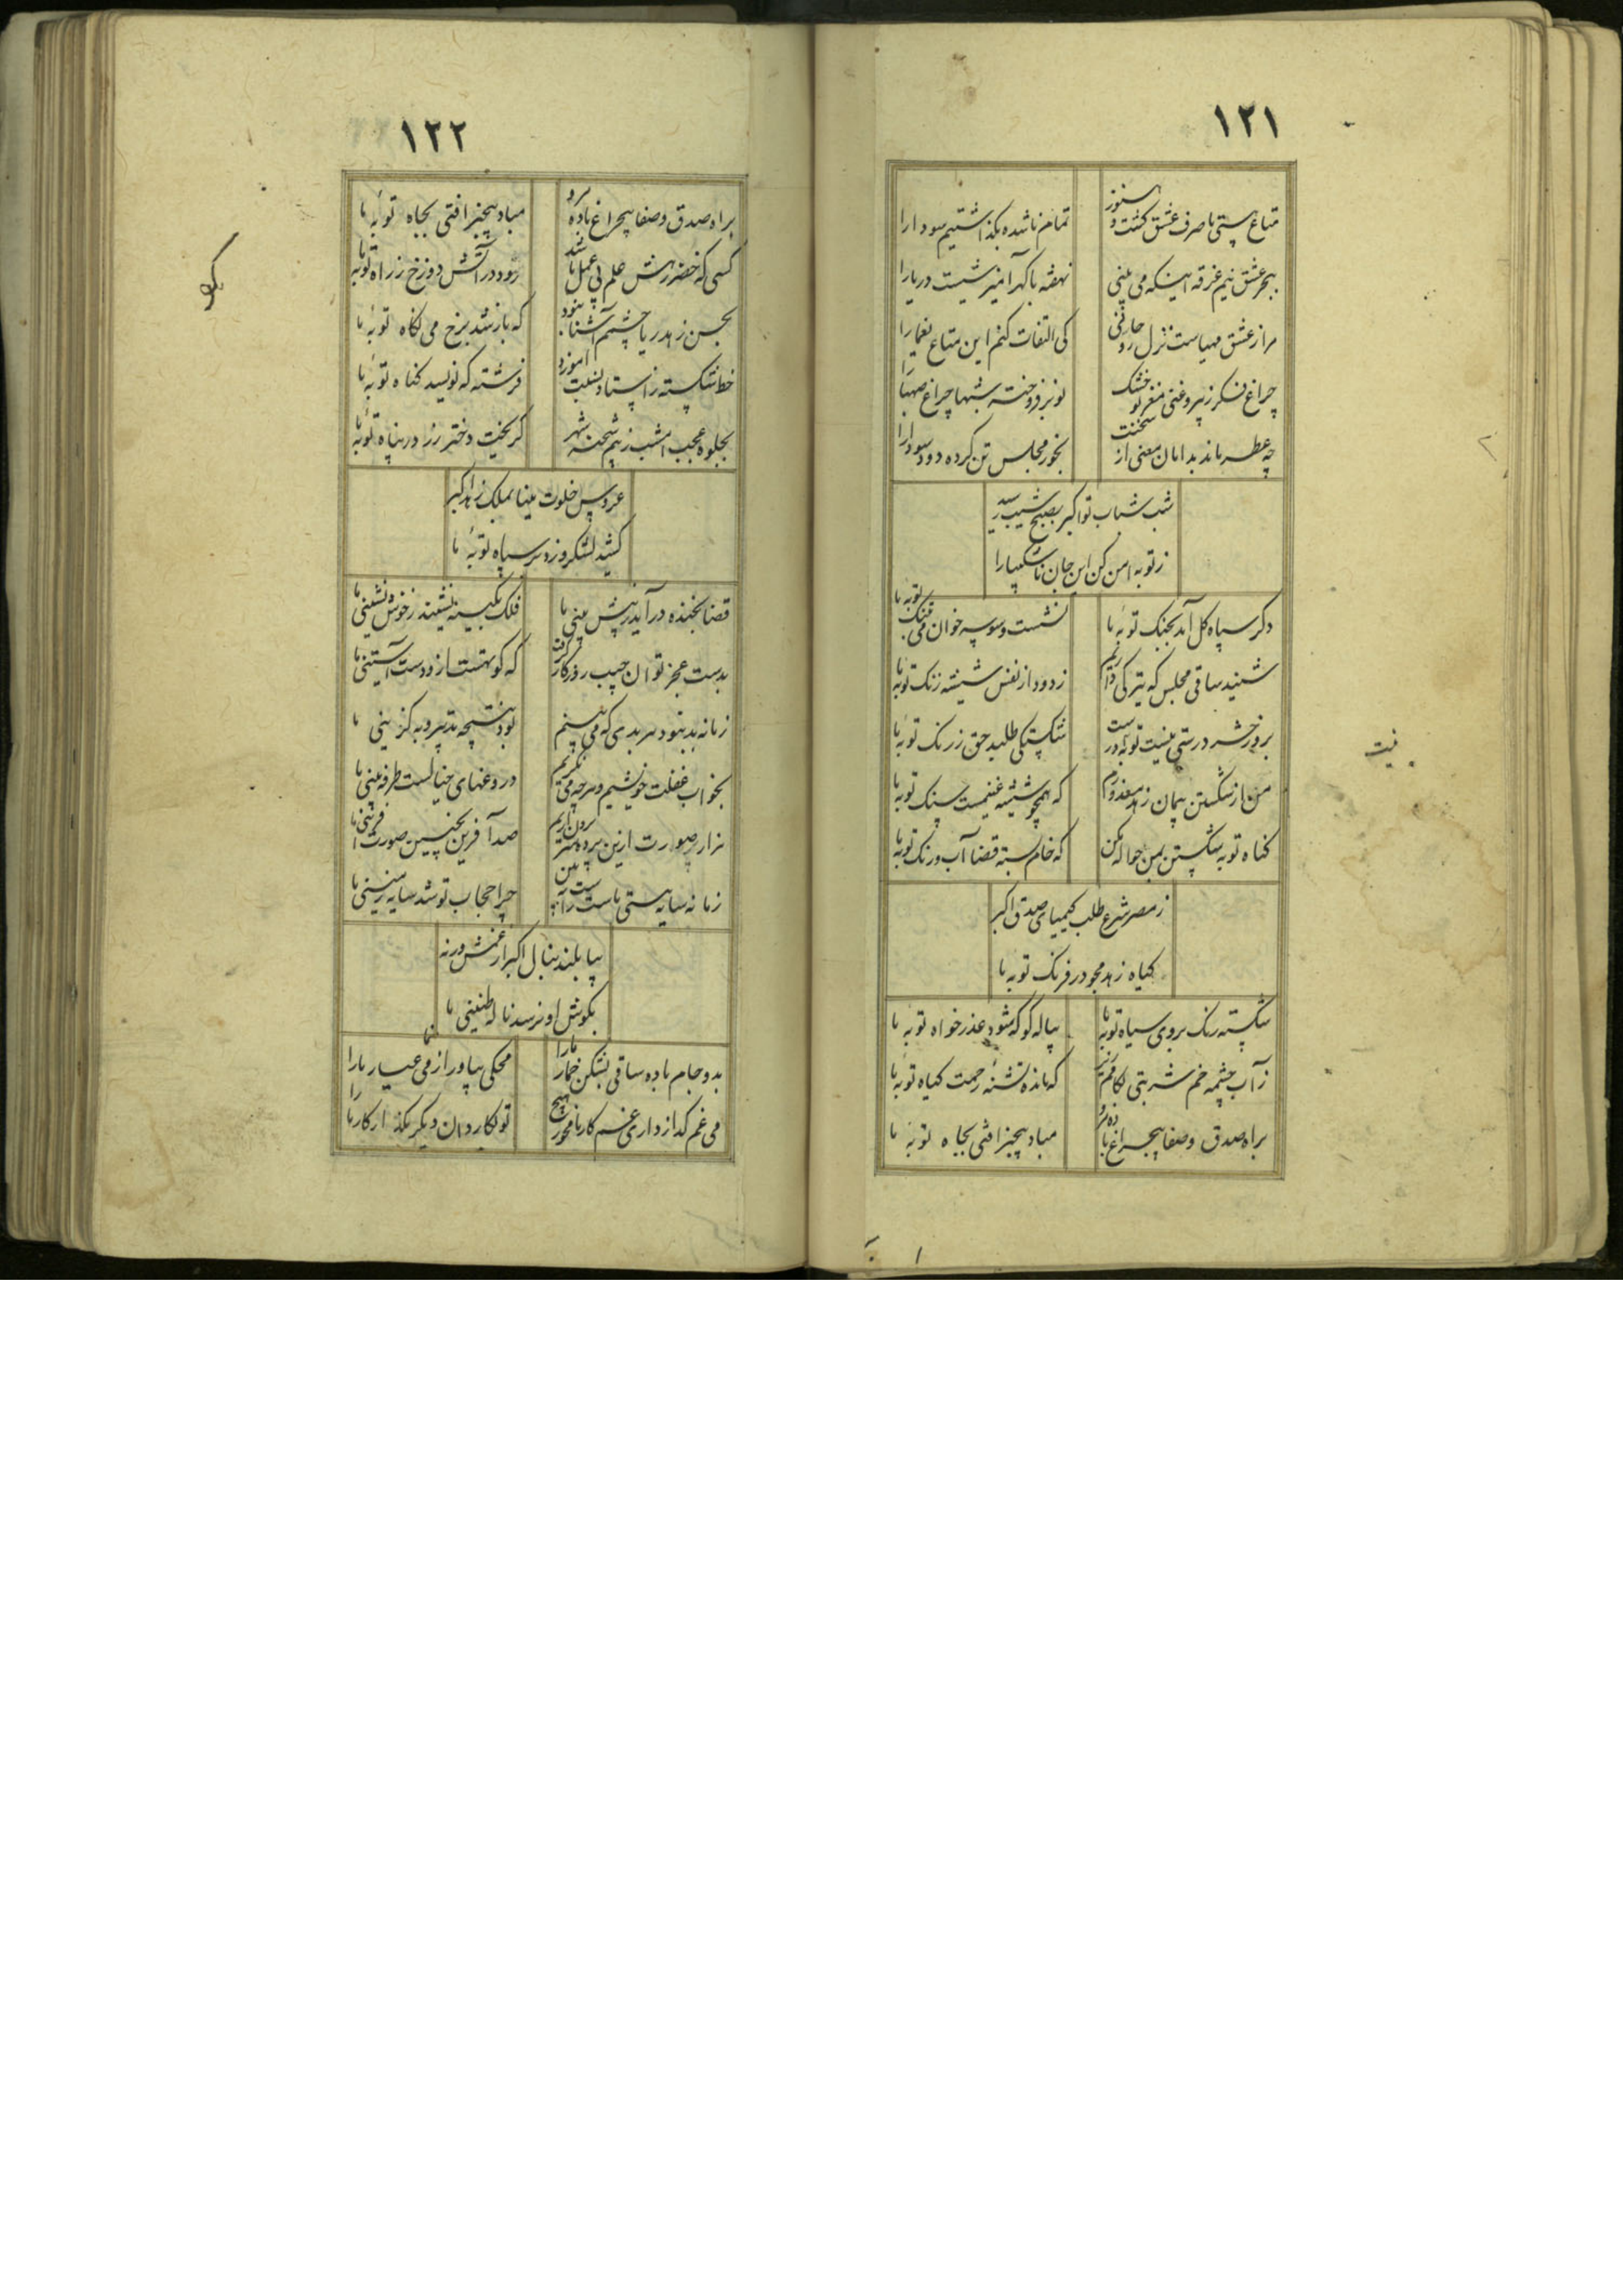 ١٢١
متاع هستی ما صرف عشق کشت و هنوز
تمام ناشده بکذاشتیم سودا را
ببحر عشق نیم غرقه اینکه می بینی
نهفته با کهر آمیزشیست دریا را
مرا ز عشق مهیاست نزل
کی التفات کنم این متاع یغما را
چراغ فکر ز بیروغنی مغز تو خشک
تو بر فروخته شبها چراغ صهبا را
چه عطر ماند بدامان معنی از سخنت
بخور مجلس تن کرده دود سودا را
شب شباب تو اکبر بصبح شیب رسید
ز توبه امن کن این جان ناشکیبا را
دکر سپاه کل آمد بجنک توبهٔ ما
نشست وسوسه خوان می
شنید ساقی مجلس که تیرکی داریم
زدود از نفس شیشه زنک توبهٔ ما
بروز حشر درستی نیت توبه در است
شکستکی طلبد حق ز رنک توبهٔ ما
من از شکستن پیمان زهد معذورم
که همچو شیشه غنیمست سنک توبهٔ ما
کناه توبه شکستن بمن حواله مکن
که خام بسته قضا آب و رنک توبهٔ ما
ز مصر شرع طلب کیمیای صدق اکبر
کیاه زهد مجو در فرنک توبه ما
شکسته رنک بروی سیاه توبهٔ ما
پیاله کو که شود عذرخواه توبهٔ ما
ز آب چشمه خم شربتی
که مانده تشنهٔ رحمت کیاه توبهٔ ما
براه صدق و صفا بیچراغ باده مرو
مباد بیخبر افتی بچاه توبهٔ ما
نیت
١٢٢
براه صدق و صفا بیچراغ باده مرو
مباد بیخبر افتی بچاه توبهٔ ما
کسی که خضر رهش علم بی عمل باشد
رود در آتش دوزخ ز راه توبهٔ ما
بحسن زهد ریا چشم آشنا نبود
که باز شد برخ می نکاه توبهٔ ما
خط شکسته ز استاد
فرشته که نویسد کناه توبهٔ ما
بجلوه عجب امشب ز بیم شحنه شهر
کریخت دختر رز در پناه توبهٔ ما
عروس خلوت مینا بملک زهد اکبر
کشید لشکر و زد بر سپاه توبهٔ ما
قضا بخنده در آید ز پیش بینی ما
فلک بکینه نشیند ز خوش نشینی ما
بدست عجز توان جیب روزکار کرفت
که کوتهست ازو دست آستینی ما
زمانه بد نبود هر بدی که می بینم
بود نتیجه تدبیر به کزینی ما
بخواب غفلت خویشیم و هر چه می نکریم
دروغهای خیالست طرفه بینی ما
هزار صورت ازین پرده
صد آفرین بچنین صورت آفرینی ما
زمانه سایه هستی ماست
چرا حجاب تو شد سایه زمینی ما
بیا بلند بنال اکبر از غمش ورنه
بکوش او نرسد ناله طنینی ما
بدو جام باده ساقی بشکن خمار ما را
محکی بیاور از می عیار ما را
می غم کداز داری غم کار ما مخور هیچ
تو بکار دان دیکر بکذار کار ما را